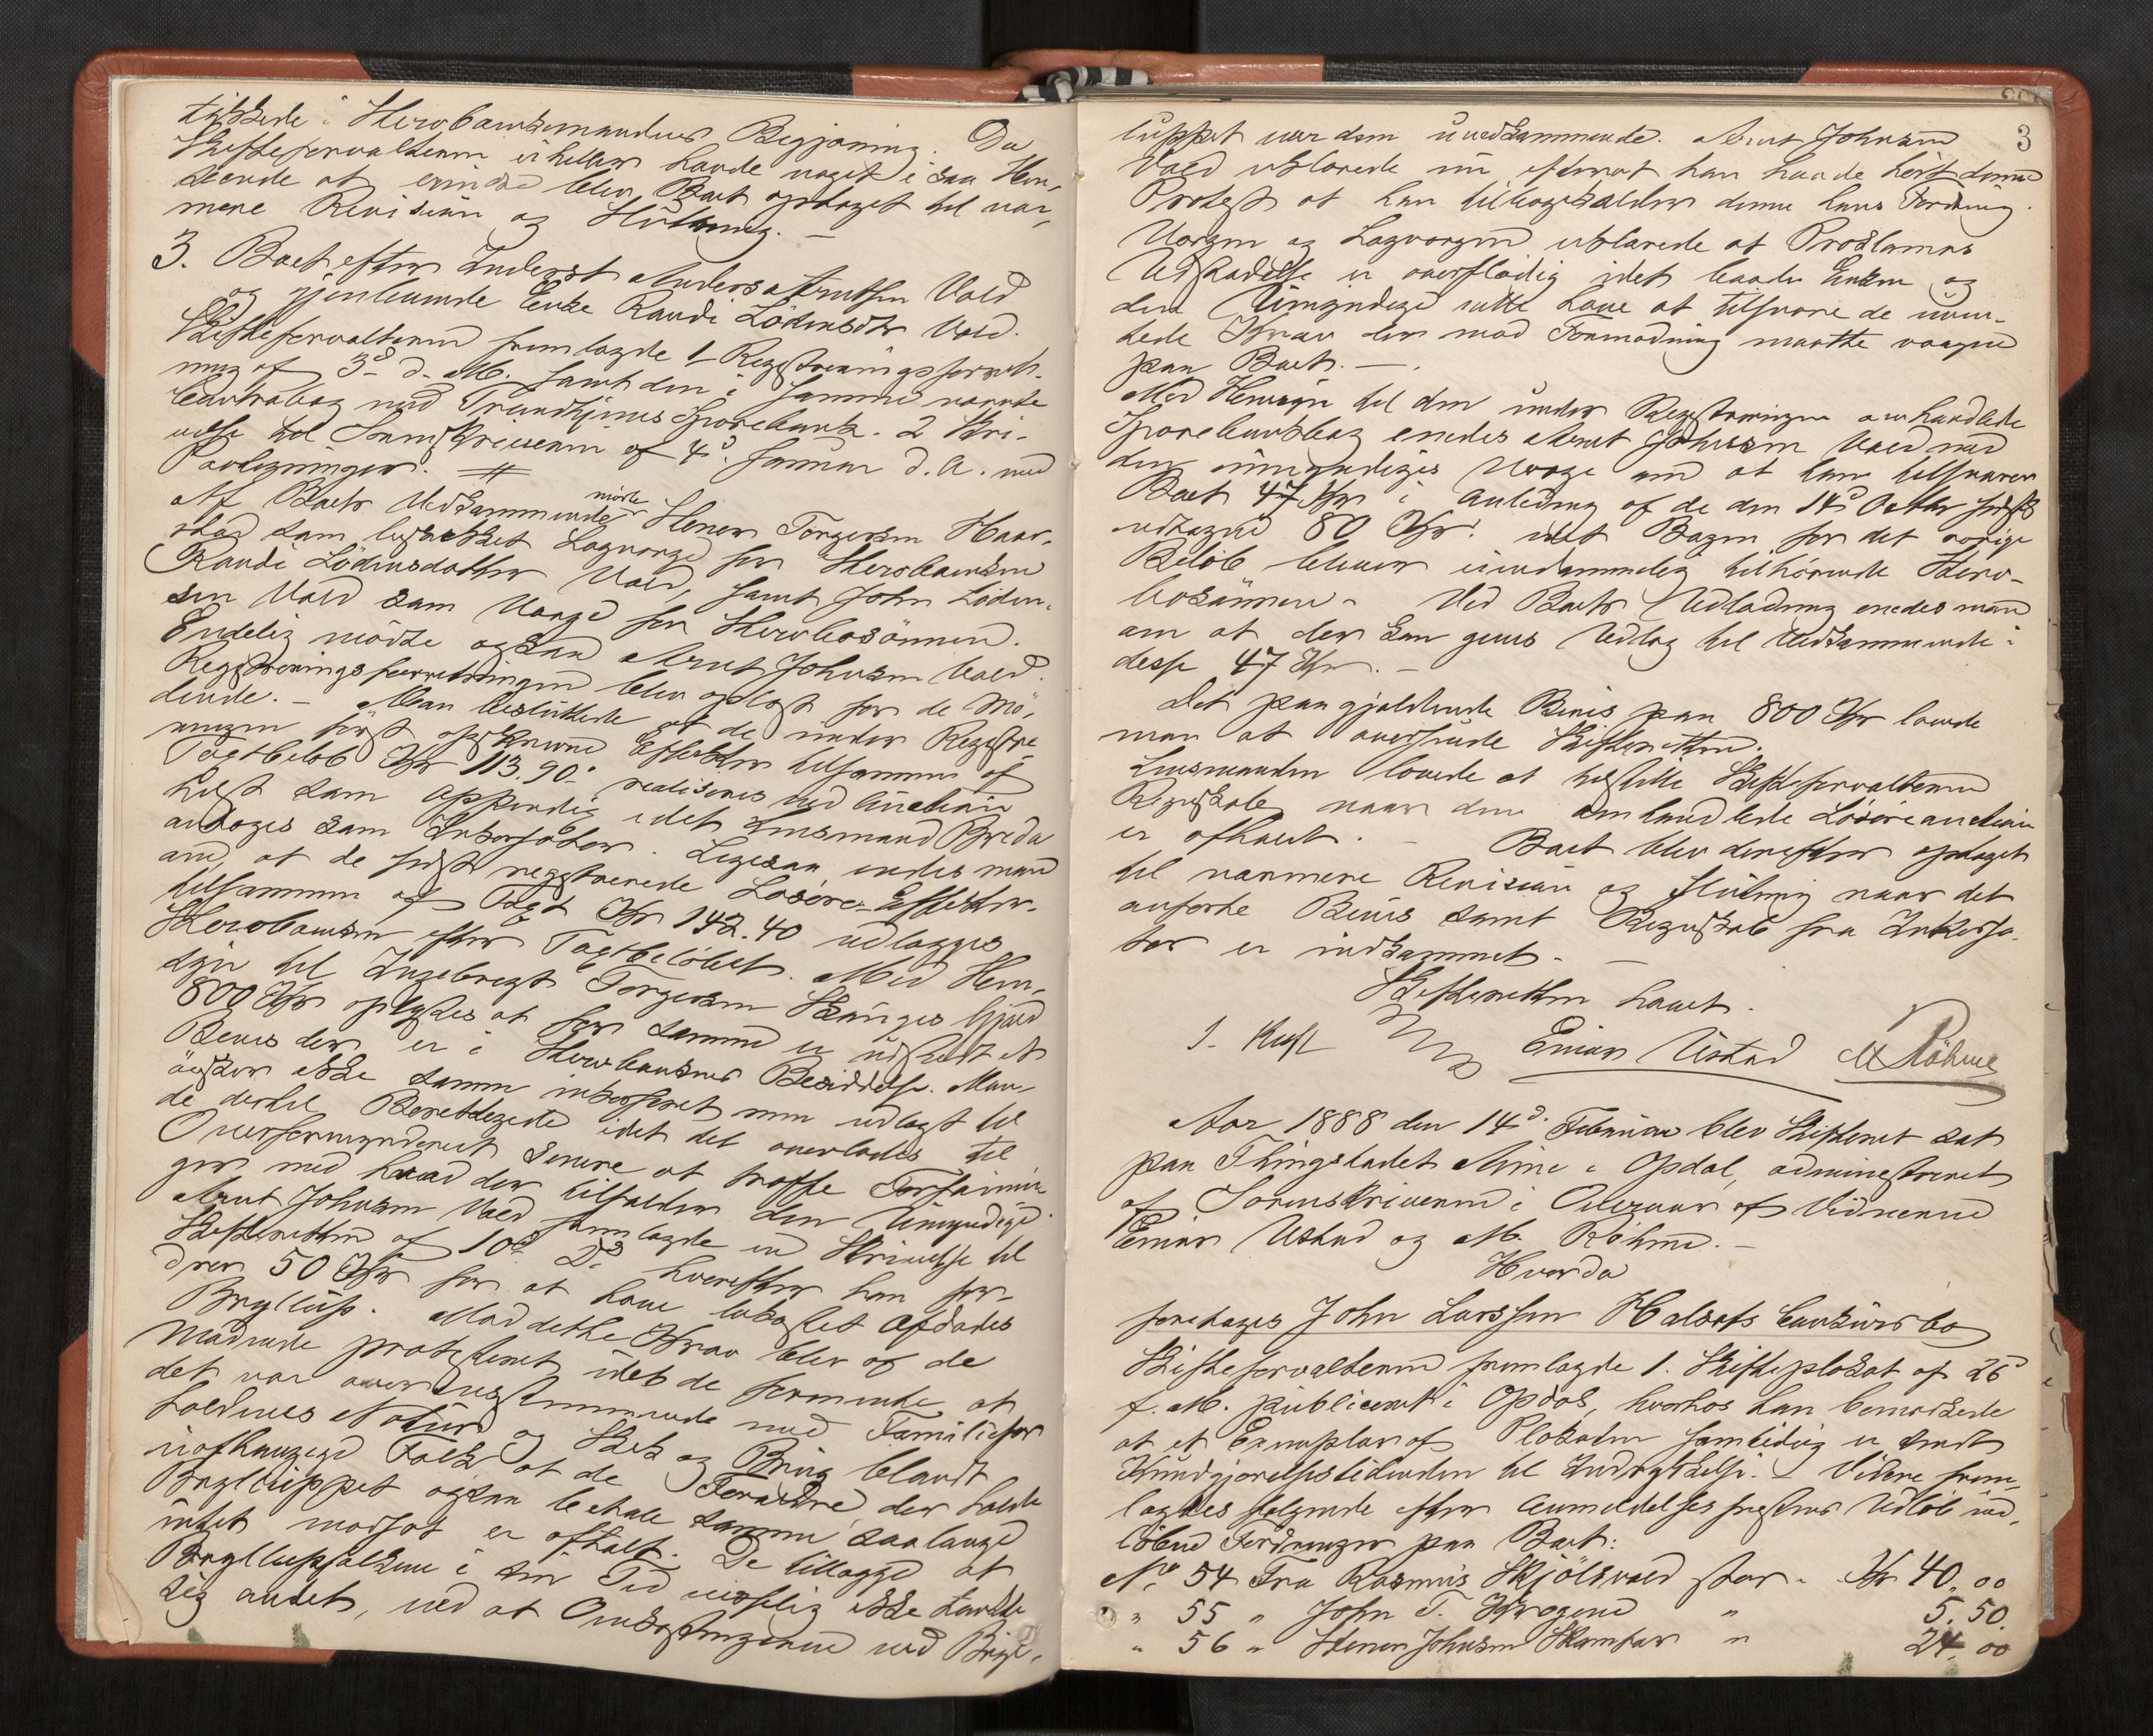 tikkede i Stervboenkemandens Begjæring. Da
Skifteforvalteren ei heller havde noget i saa Hen-
seende at erindre blev Boet optaget til nær-
mere Revision og Slutning. —
3. Boet efter Inderst Anders Arntsen Vold
og gjenlevende Enke Randi Lödensdtr Vold.
Skifteforvalteren fremlagde 1 Registreringsforret-
ning af 3d d. M. samt den i samme nævnte
Contrabog med Trondhjems Sparebank. 2 Skri-
velse til Sorenskriveren af 4d Januar d. A. med
Paategninger.
Af Boets Vedkommende mödte Stener Torgersen Haar-
stad som beskikket Lagværge for Stervboenken
Randi Lödensdatter Vold, samt John Löden-
sen Vold som Værge for Stervbosönnen.
Endelig mödte ogsaa Arnt Johnsen Vold.
Registreringsforretningen blev oplæst for de Mö-
dende. — Man besluttede at de under Registre-
ringen först opskrevne Effekter tilsammen af
Taxtbelöb Kr 113.90 realiseres ved Auction
helst som Oppendig idet Lensmand Breda
antoges som Inkassator. Ligesaa enedes man
om, at de sidst registrerede Lösöre-Effekter
tilsammen af Taxt Kr 142.40 udlægges
Stervboenken efter Taxtbelöbet. Med Hen-
syn til Ingebrigt Torgersen Skünges Gjæld
800 Kr oplystes at for samme er udstedt et
Bevis der er i Stervboenkens Besiddelse. Man
önsker ikke samme inkasseret men udlagt til
de dertil Berettigede idet det overlades til
Overformynderiet senere at træffe Forföinin-
ger med hvad der tilfalder den Umyndige.
Arnt Johnsen Vold fremlagde en Skrivelse til
Skifteretten af 10d Ds. hvorefter han for-
drer 50 Kr for at have bekostet Afdödes
Bryllup. Mod dette Krav blev af de
Mödende protesteret idet de formente at
det var overensstemmende med Familiefor-
holdenes Natur og Skik og Brug blandt
uafhængige Folk at de Forældre der holde
Bryllüppet ogsaa betale samme saalænge
intet modsat er aftalt. De tillagde at
Bryllupsfolkene i sin Tid visselig ikke tænkte
sig andet, ved at Omkostningerne ved Bryl-
3
luppet var dem uvedkommende. Arnt Johnsen
Vold erklærede nu efterat han havde hört denne
Protest at han tilbagekalder denne hans Fordring.
Værgen og Lagværgen erklærede at Proclamas
Udstedelse er overflödig idet baade Enken og
den Umyndige rette Lave at tilsvare de uven-
tede Krav der mod Formodning maatte vaagne
paa Boet. —
Med Hensyn til den under Registreringen omhandlede
Sparebankbog enedes Arnt Johnsen Vold med
den umyndiges Værge om at han tilsvarer
Boet 47 Kr i Anledning af de den 14d October sidst
udtagne 80 Kr. idet Bogen for det övrige
Belöb bliver eiendommelig tilhörende Sterv-
bosönnen. — Ved Boets Udlodning enedes man
om at der kan gives Udlæg til Vedkommende i
disse 47 Kr. —
Det paagjældende Bevis paa 800 Kr lovede
man at oversende Skifteretten.
Lensmanden lovede at tilstille Skifteforvalteren
Regnskab naar den omhandlede Lösöreauction
er afholdt. — Boet blev derefter optaget
til nærmere Revision og Slutning naar det
anförte Bevis samt Regnskab fra Inkassa-
tor er indkommet. —
Skifteretten hævet.
Einar Ustad M Röhme
Aar 1888 den 14d Februar blev Skifteret sat
paa Thingstedet Aune i Opdal, administreret
af Sorenskriveren i Overvær af Vidnerne
Einar Ustad og M. Röhme. —
Hvorda
foretoges John Larssen Halsets Concursbo
Skifteforvalteren fremlagde 1. Skifteplakat af 26d
f. M. publiceret i Opdal, hvorhos han bemærkede
at et Exemplar af Plakaten samtidig er sendt
Kundgjörelsestidenden til Indrykkelse. Videre frem-
lagdes fölgende efter Anmeldelsesfristens Udlöb ind-
löbne Fordringer paa Boet:
No 54 Fra Rasmus Skjölsvold stor — Kr 40,00
" 55 " John T. Krogen " 5,50
" 56 " Stener Johnsen Skamfar " 24,00